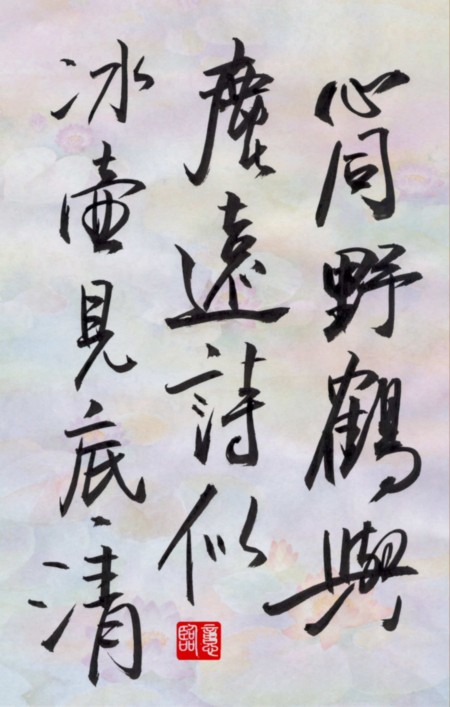 心同野鶴與
塵遠詩似
冰壺見底清
意臨